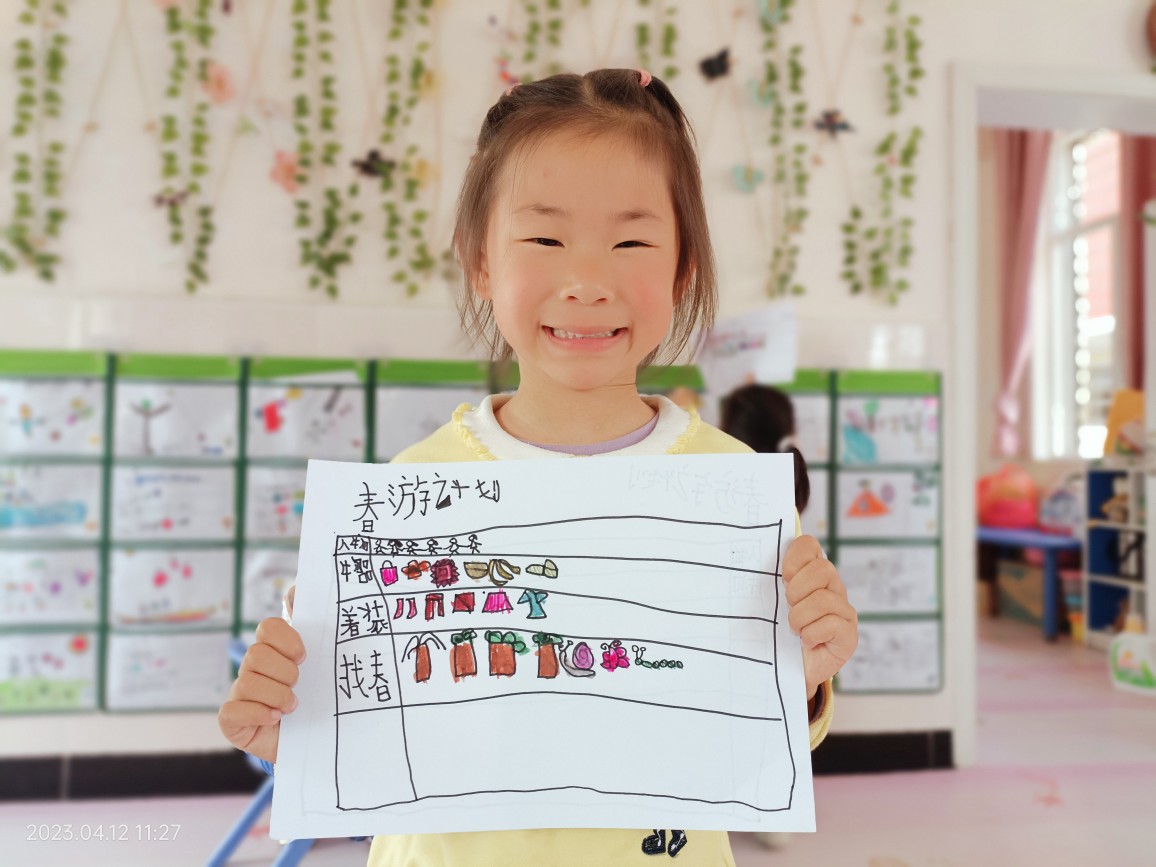 春游计划
人物
牛男
着装
找春
2023.04.12 11:27